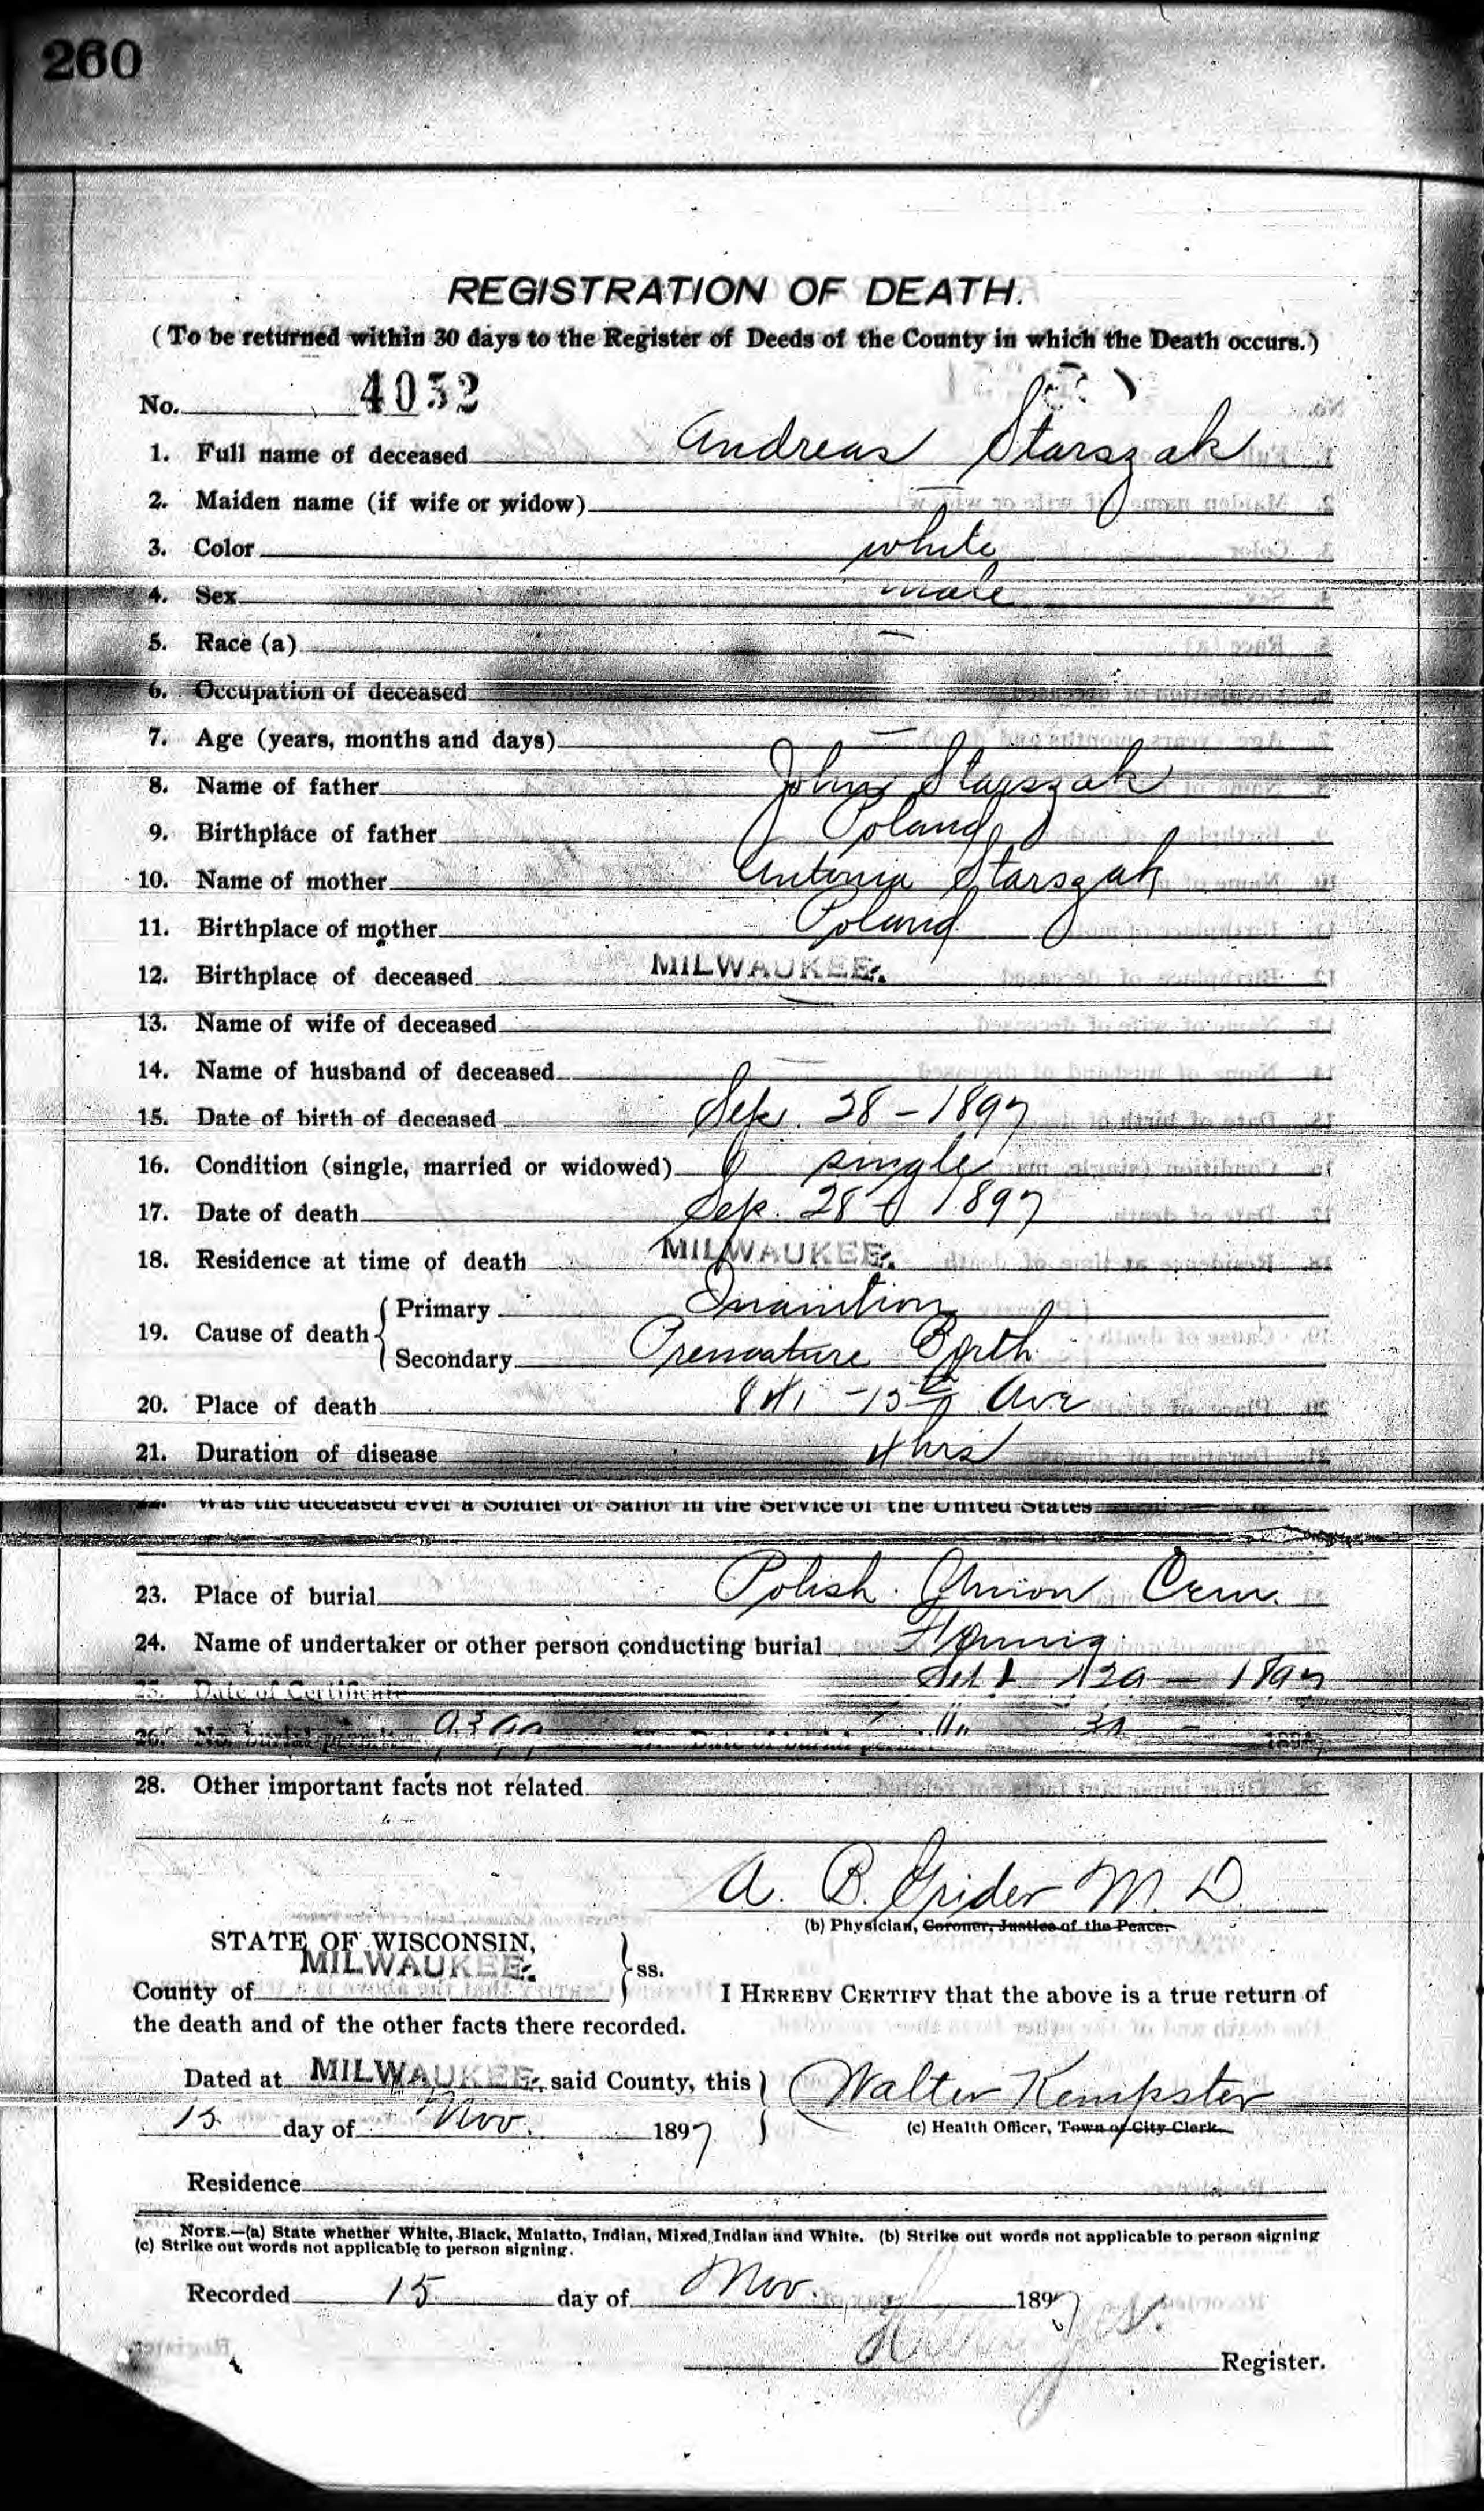 260
REGISTRATION OF DEATH.
(To be returned within 30 days to the Register of Deeds of the County in which the Death occurs.)
No. 4032
1. Full name of deceased Andreas Starszak
2. Maiden name (if wife or widow) —
3. Color white
4. Sex male
5. Race (a) —
6. Occupation of deceased
7. Age (years, months and days) —
8. Name of father John Starszak
9. Birthplace of father Poland
10. Name of mother Antonia Starszak
11. Birthplace of mother Poland
12. Birthplace of deceased MILWAUKEE.
13. Name of wife of deceased —
14. Name of husband of deceased —
15. Date of birth of deceased Sep. 28 - 1897
16. Condition (single, married or widowed) single
17. Date of death Sep. 28 - 1897
18. Residence at time of death MILWAUKEE.
19. Cause of death { Primary Inanition
Secondary Premature Birth
20. Place of death - 15th Ave
21. Duration of disease 4 hrs
22. Was the deceased ever a Soldier or Sailor in the Service of the United States
23. Place of burial Polish Union Cem.
24. Name of undertaker or other person conducting burial
25. Date of Certificate Sept 29 - 1897
26. No. burial permit Date of burial permit
28. Other important facts not related
A. B. Grider M. D.
(b) Physician, Coroner, Justice of the Peace.
STATE OF WISCONSIN,
MILWAUKEE. } ss.
County of I HEREBY CERTIFY that the above is a true return of
the death and of the other facts there recorded.
Dated at MILWAUKEE. said County, this } Walter Kempster
15 day of Nov. 1897 (c) Health Officer, Town or City Clerk.
Residence
NOTE.—(a) State whether White, Black, Mulatto, Indian, Mixed Indian and White. (b) Strike out words not applicable to person signing
(c) Strike out words not applicable to person signing.
Recorded 15 day of Nov. 1897
Register.